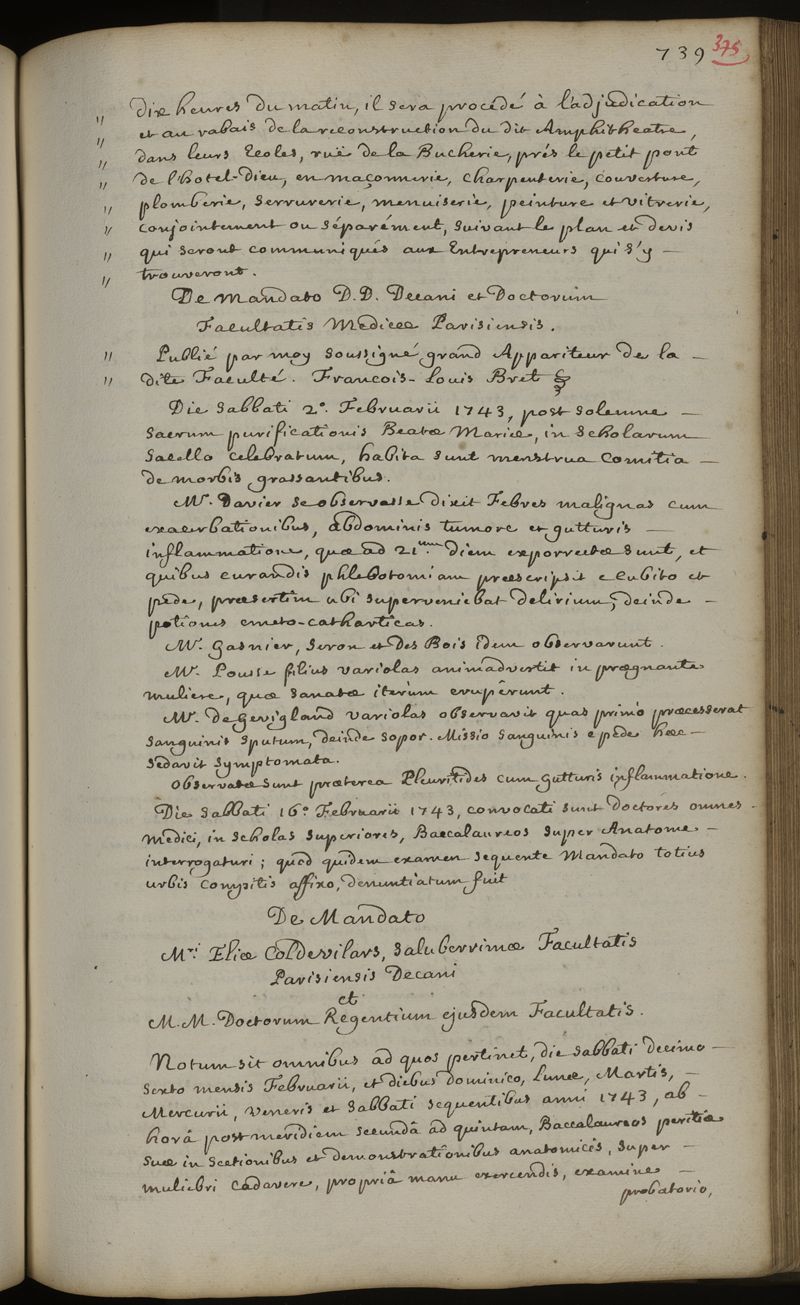 739 375
" dix heures du matin, il sera procédé à l'adjudication
" et au rabais de la reconstruction du dit Amphitheatre,
" dans leurs Ecoles, ruë de la Bucherie, prés le petit pont
" de l'hotel-Dieu, en maçonnerie, charpenterie, couverture,
" plomberie, serrurerie, menuiserie, peinture et vitrerie,
" conjointement ou séparément, suivant le plan et devis
" qui seront communiqués aux Entrepreneurs qui s'y —
" trouveront.
De Mandato D.D. Decani et Doctorum
Facultatis Medicæ Parisiensis.
" Publié par moy soussigné grand Appariteur de la —
" dite Faculté. Francois-Louis Bret
Die Sabbati 2°. Februarii 1743, post solemne —
sacrum purificationis Beatæ Mariæ, in Scholarum
sacello celebratum, habita sunt menstrua Comitia —
de morbis grassantibus.
Mr. Davier se observasse dixit Febres malignas cum
exacerbationibus, abdominis tumore et gutturis —
inflammatione, quæ ad 21um. diem exporrectæ sunt, et
quibus curandis phlebotomiam præscripsit e cubito et
pede, præsertim ubi superveniebat delirium, deinde —
potiones emeto-catharticas.
Mr. Gasnier, Seron et Des Bois idem observarunt.
Mr. Pousse filius variolas animadvertit in prægnante
muliere, quæ sanatæ iterùm erupêrunt.
Mr. de Gevigland variolas observavit quas primò præcesserat
sanguinis sputum, deinde sopor. Missio sanguinis e pede hæc —
sedavit symptomata.
Observatæ sunt præterea Pleuritides cum gutturis inflammatione.
Die Sabbati 16°. Februarii 1743, convocati sunt doctores omnes —
medici, in scholas superiores, Baccalaureos super Anatome —
interrogaturi ; quod quidem examen sequente Mandato totius
urbis compitis affixo, denuntiatum fuit
De Mandato
Mri. Eliæ Coldevilars, saluberrimæ Facultatis
Parisiensis Decani
et
M.M. Doctorum Regentium ejusdem Facultatis.
Notum sit omnibus ad quos pertinet, die Sabbati decimo —
sexto mensis Februarii, et diebus Dominico, Lunæ, Martis, —
Mercurii, Veneris et Sabbati sequentibus anni 1743, ab —
horâ post meridiem secundâ ad quintam, Baccalaureos peritiæ
suæ in sectionibus et demonstrationibus anatomicis, super —
muliebri cadavere, propriâ manu exercendis, examine —
probatorio,